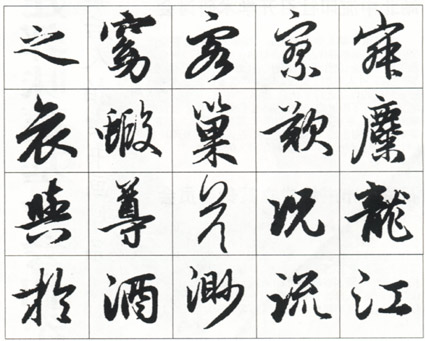 寂麋龍江
寥歎況流
客巢兮渺
窮蝦尊酒
之哀與於